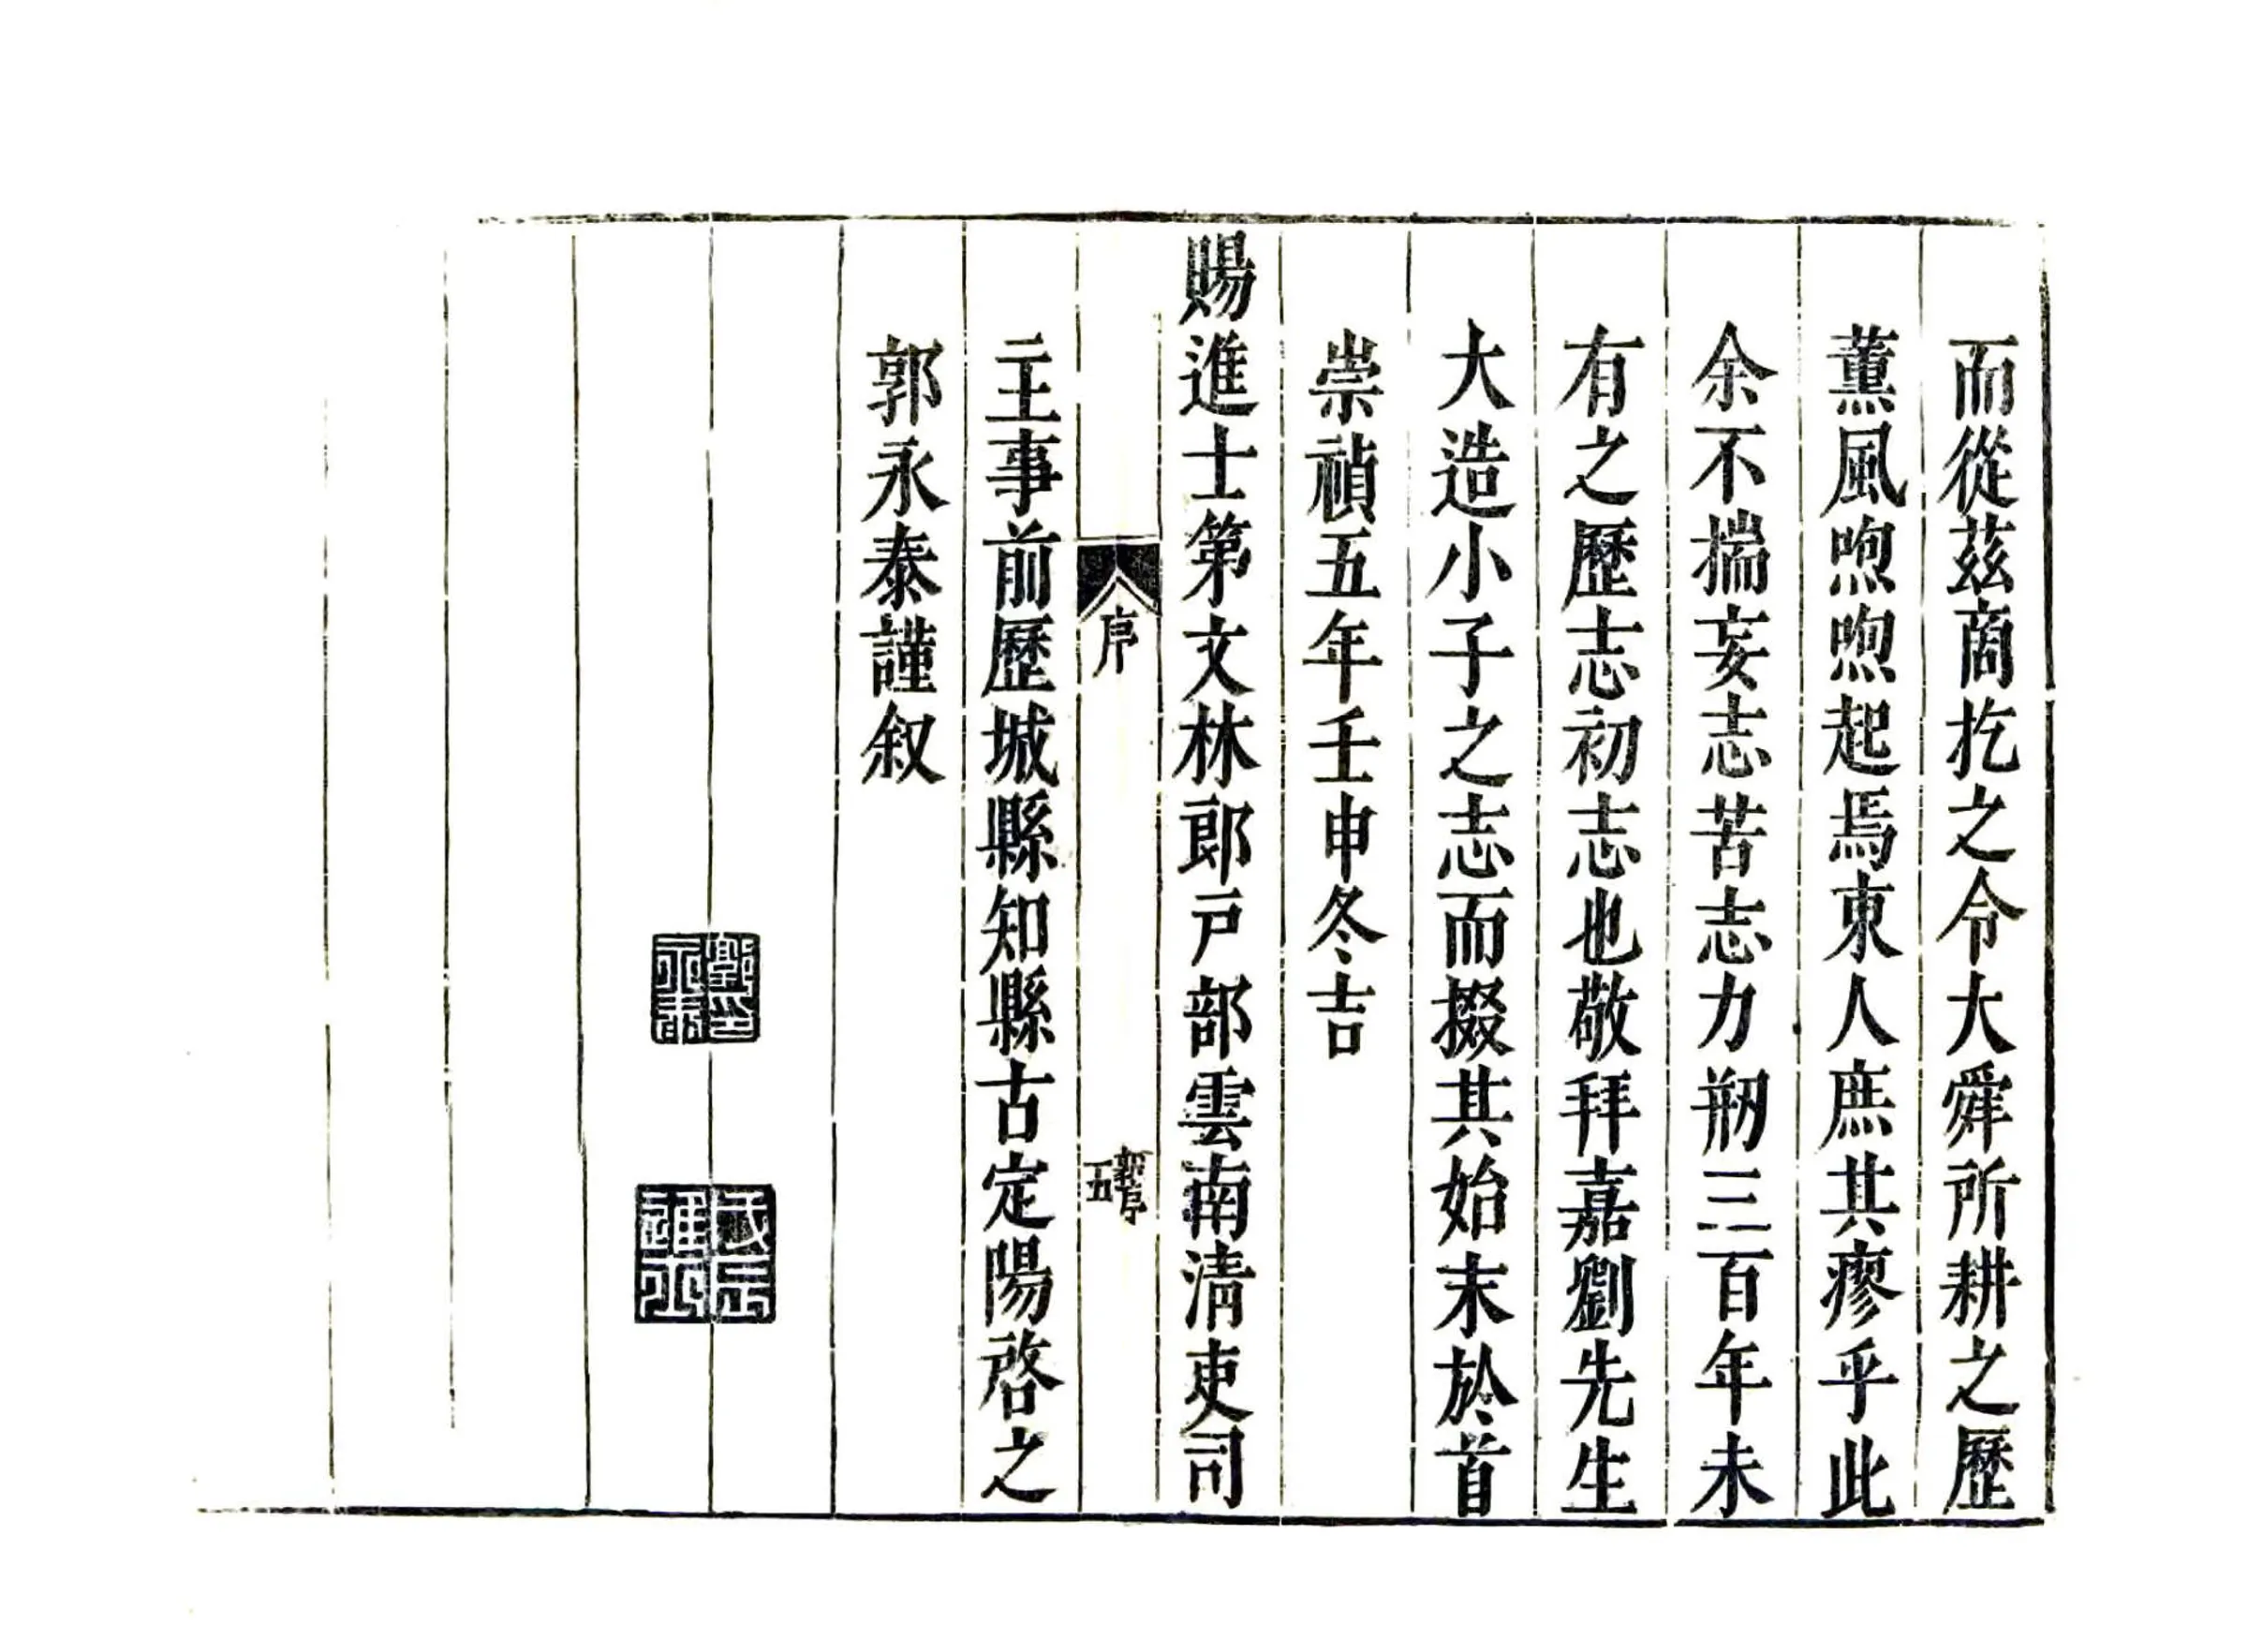 而從茲商扢之令大舜所耕之歷
薰風喣喣起焉東人庶其瘳乎此
余不揣妄志苦志力剏三百年未
有之歷志初志也敬拜嘉劉先生
大造小子之志而掇其始末於首
崇禎五年壬申冬吉
賜進士第文林郎戸部雲南清吏司
序
五
主事前歷城縣知縣古定陽啓之
郭永泰謹叙